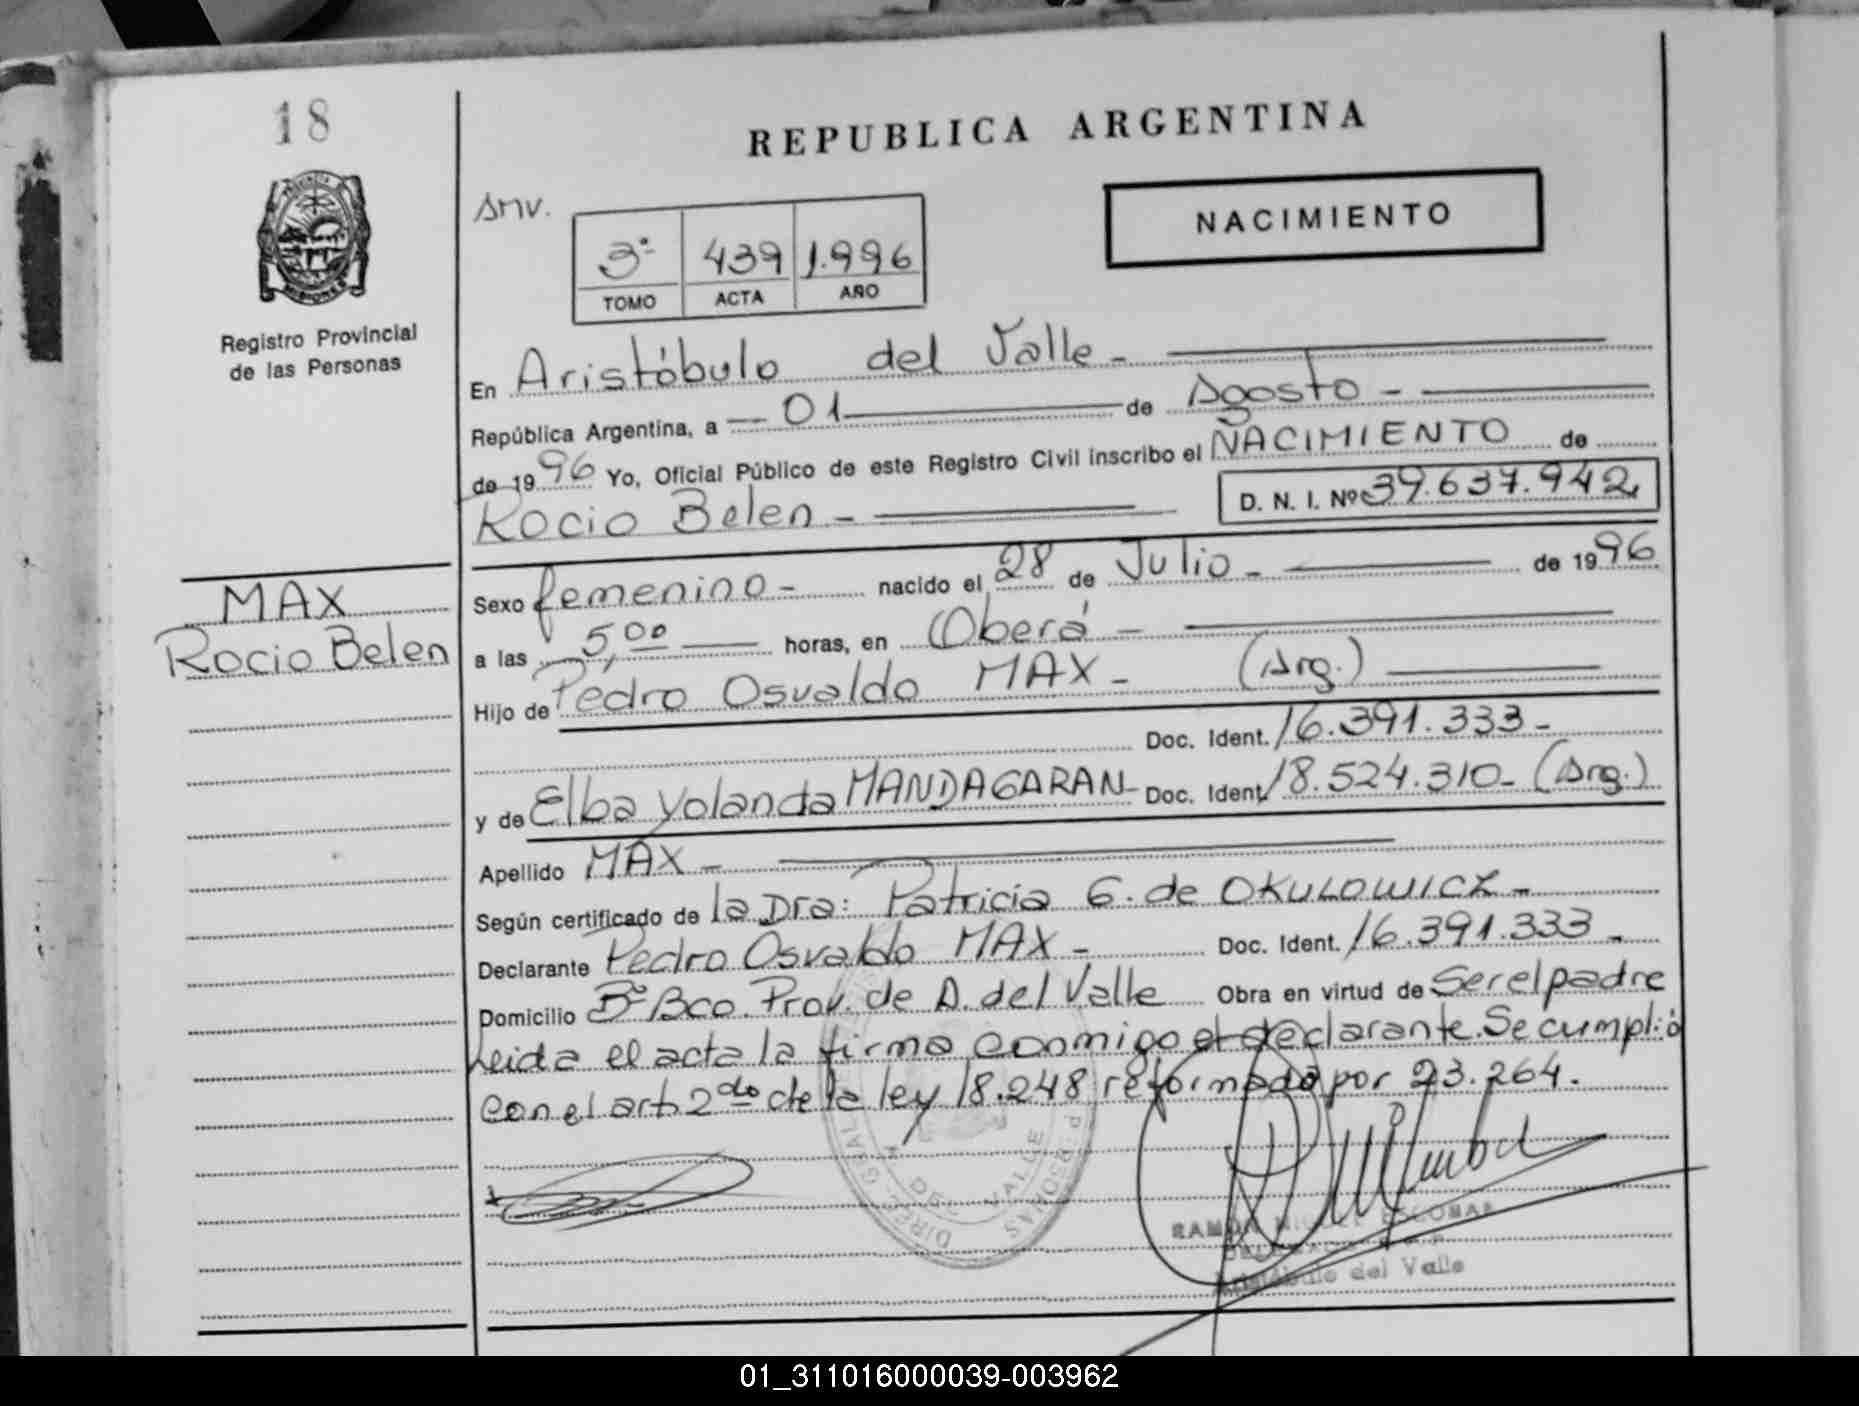 18
REPUBLICA ARGENTINA
PROVINCIA DE
MISIONES
Registro Provincial
de las Personas
smv.
3º 439 1.996
TOMO ACTA AÑO
NACIMIENTO
En Aristóbulo del Valle -
República Argentina, a 01 de Agosto -
de 1996 Yo, Oficial Público de este Registro Civil inscribo el NACIMIENTO de
Rocio Belen - D. N. I. Nº 39.637.942
MAX
Rocio Belen
Sexo femenino - nacido el 28 de Julio - de 1996
a las 5,00 horas, en Oberá -
Hijo de Pedro Osvaldo MAX - (Arg.)
Doc. Ident. 16.391.333 -
y de Elba Yolanda MANDAGARAN - Doc. Ident. 18.524.310 - (Arg.)
Apellido MAX -
Según certificado de la Dra: Patricia G. de OKULOWICZ -
Declarante Pedro Osvaldo MAX - Doc. Ident. 16.391.333 -
Domicilio Bº Bco. Prov. de A. del Valle Obra en virtud de Ser el padre
Leida el acta la firma conmigo el declarante. Se cumplió
con el art. 2do de la ley 18.248 reformada por 23.264.
DIREC. GRAL. PERSONAS
DEL VALLE
RAMON MIGUEL ESCOBAR
Aristóbulo del Valle
01_311016000039-003962